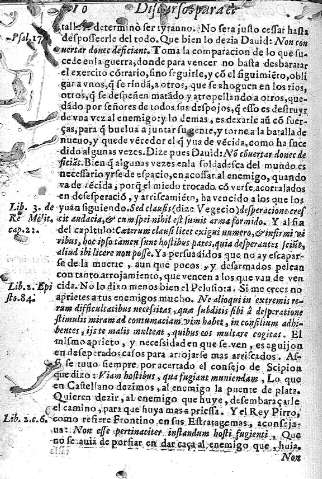 10 Discursos para el
talle se determinò ser tyranno. No sera justo cessar hasta
Psal. 17. desposseerle del todo. Que bien lo dezia Dauid: Non con
uertar donec deficiant. Toma la comparacion de lo que su-
cede en la guerra, donde para vencer no basta desbaratar
el exercito cõtrario, sino seguirle, y cõ el siguimiẽto, obli
gar a vnos, q̃ se rindã, a otros, que se ahoguen en los rios,
otros, q̃ se despeñen matãdo y atropellandoa otros, que-
dãdo por señores de todos sus despojos, q̃ esso es destruyr
de vna vez al enemigo: y lo demas, es dexarle aũ cõ fuer-
ças, para q̃ buelua a juntar su gente, y torne a la batalla de
nueuo, y quede vẽcedor el q̃ y ua de vẽcida, como ha suce
dido algunas vezes. Dize pues Dauid: Nõ cõuertar donec de
ficiãt. Bien q̃ algunas vezes en la soldadesca del mundo es
necessario yrse de espacio, en acossar al enemigo, quando
va de vẽcida, porq̃ el miedo trocado cõ verse acorralados
en desesperaciõ, y arriscamiẽto, ha vencido a los que los
Lib. 3. de yuan siguiendo. Sed clausis (dize Vegecio) desperatione cresc
Re Milit. cit audacia, & cum spei nihil est sumit arma formido. Y al fin
cap. 21. del capitulo: Cæterum clausi licet exigui numero, & infirmi vi
ribus, hoc ipso tamen sunt hostibus pares, quia desperantes sciũt,
aliud ibi licere non posse. Ya persuadidos que no ay escapar-
se de la muerte, aun que pocos, y desarmados pelean
con tanto arrojamiento, que vencen a los que van de ven
Lib. 2. Epi cida. No lo dixo menos bien el Pelusiota. Si me crees no
sto. 84. aprietes a tus enemigos mucho. Ne alioqui in extremis re-
ram difficultatibus necessitas, qua subditis sibi à desperatione
stimulis miram ad comminationem vim habet, in consilium adhi-
bentes, ijs te malis mulctent, quibus eos mulctare cogitas. El
mismo aprieto, y necessidad en que se ven, es aguijon
en desesperados casos para arrojarse mas arriscados. As-
si se tuuo siempre por acertado el consejo de Scipion
que dixo: Viam hostibus, qua fugiant muniendam, Lo que
en Castellano dezimos, al enemigo la puente de plata.
Quieren dezir, al enemigo que huye, desembaraçarle
el camino, para que huya mas apriessa. Y el Rey Pirro,
Lib. 2. c. 6. como refiere Frontino en sus Estratagemas, aconseja-
ua: Non esse pertinaciter instandum hosti fugienti, Que
no se auia de porfiar en dar caça al enemigo, que huia,
Non